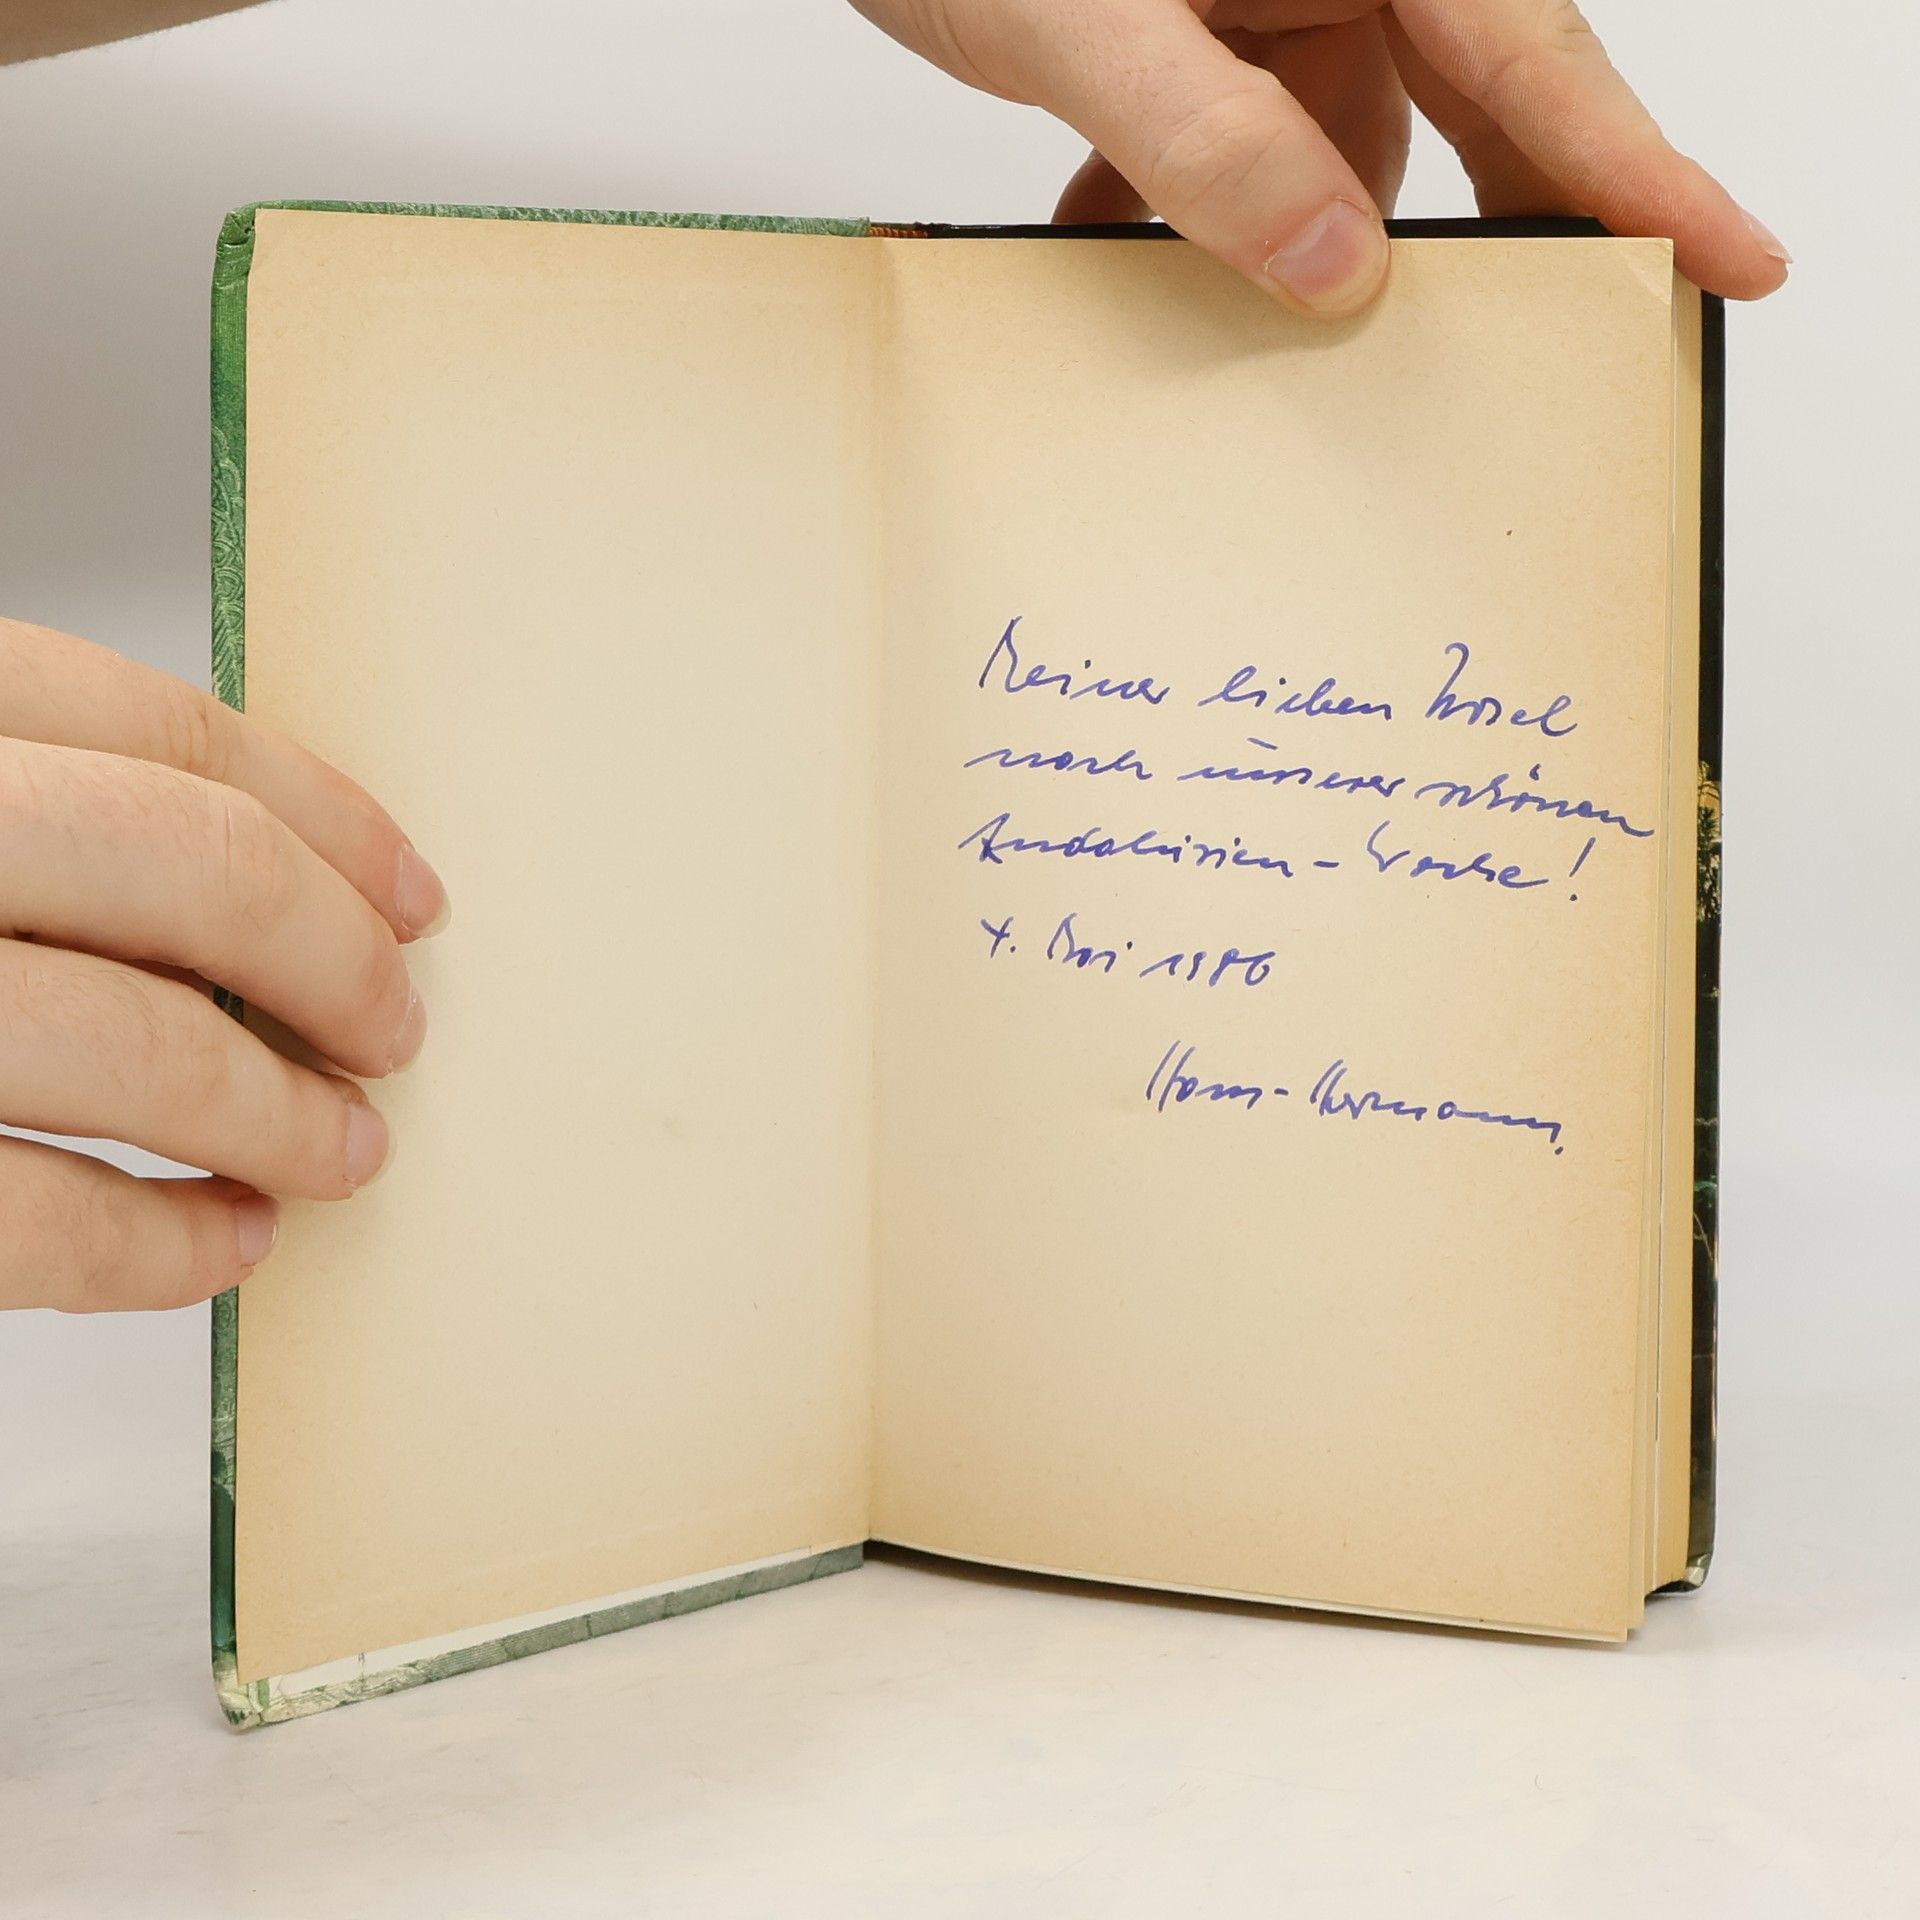 Meiner lieben Rosel
nach unserer schönen
Andalusien-Woche!
4. Mai 1986
Hans-Hermann.